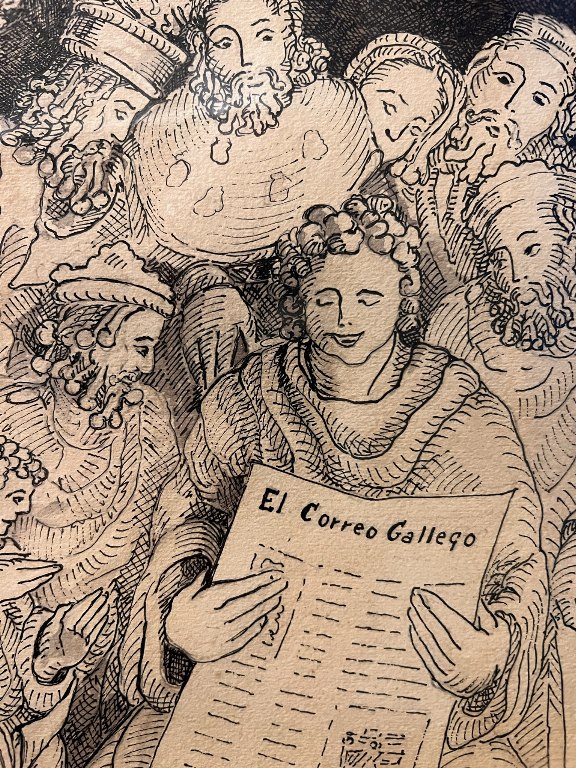 El Correo Gallego